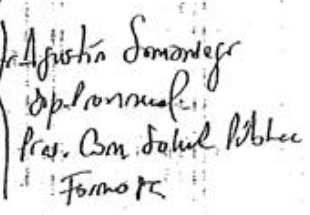 Agustín Samaniego
Dip. Provincial
Pres. Com. Salud Pública
Formosa